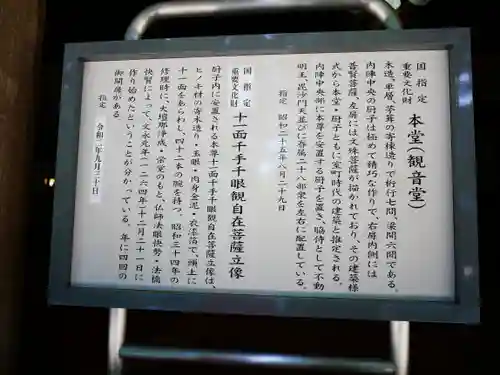 国指定
重要文化財
本堂（観音堂）
木造、単層、茅葺の寄棟造りで桁行七間、梁間六間である。
内陣中央の厨子は極めて精巧な作りで、右扉内側には
普賢菩薩、左扉には文殊菩薩が描かれており、その建築様
式から本堂・厨子ともに室町時代の建築と推定される。
内陣中央部に本尊を安置する厨子を置き、脇侍として不動
明王、毘沙門天並びに眷属二十八部衆を左右に配置している。
指定　昭和二十五年八月二十九日
国指定
重要文化財
十一面千手千眼観自在菩薩立像
厨子内に安置される本尊十一面千手千眼観自在菩薩立像は、
ヒノキ材の寄木造り・玉眼・肉身金泥・衣漆箔で、頭上に
十一面をあらわし、四十二本の腕を持つ。昭和三十四年の
修理時に、大壇那浄成・宗堂のもと、仏師法眼快勢・法橋
快賢によって、文永元年（一二六四年）十二月二十一日に
作り始めたということが分かっている。年に四回の
御開扉がある。
指定　令和二年九月三十日